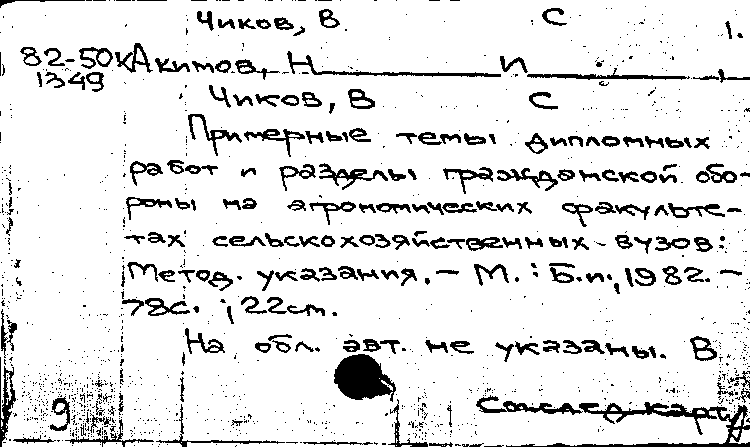 Чиков, В С 1.
82-50к Акимов, Н И
1349
Чиков, В С
Примерные темы дипломных
работ и разделы гражданской обо-
роны на агрономических факульте-
тах сельскохозяйственных вузов:
Метод. указания. - М. : Б.и., 1982. -
78с. ; 22см.
На обл. авт. не указаны. В
9 См след карту